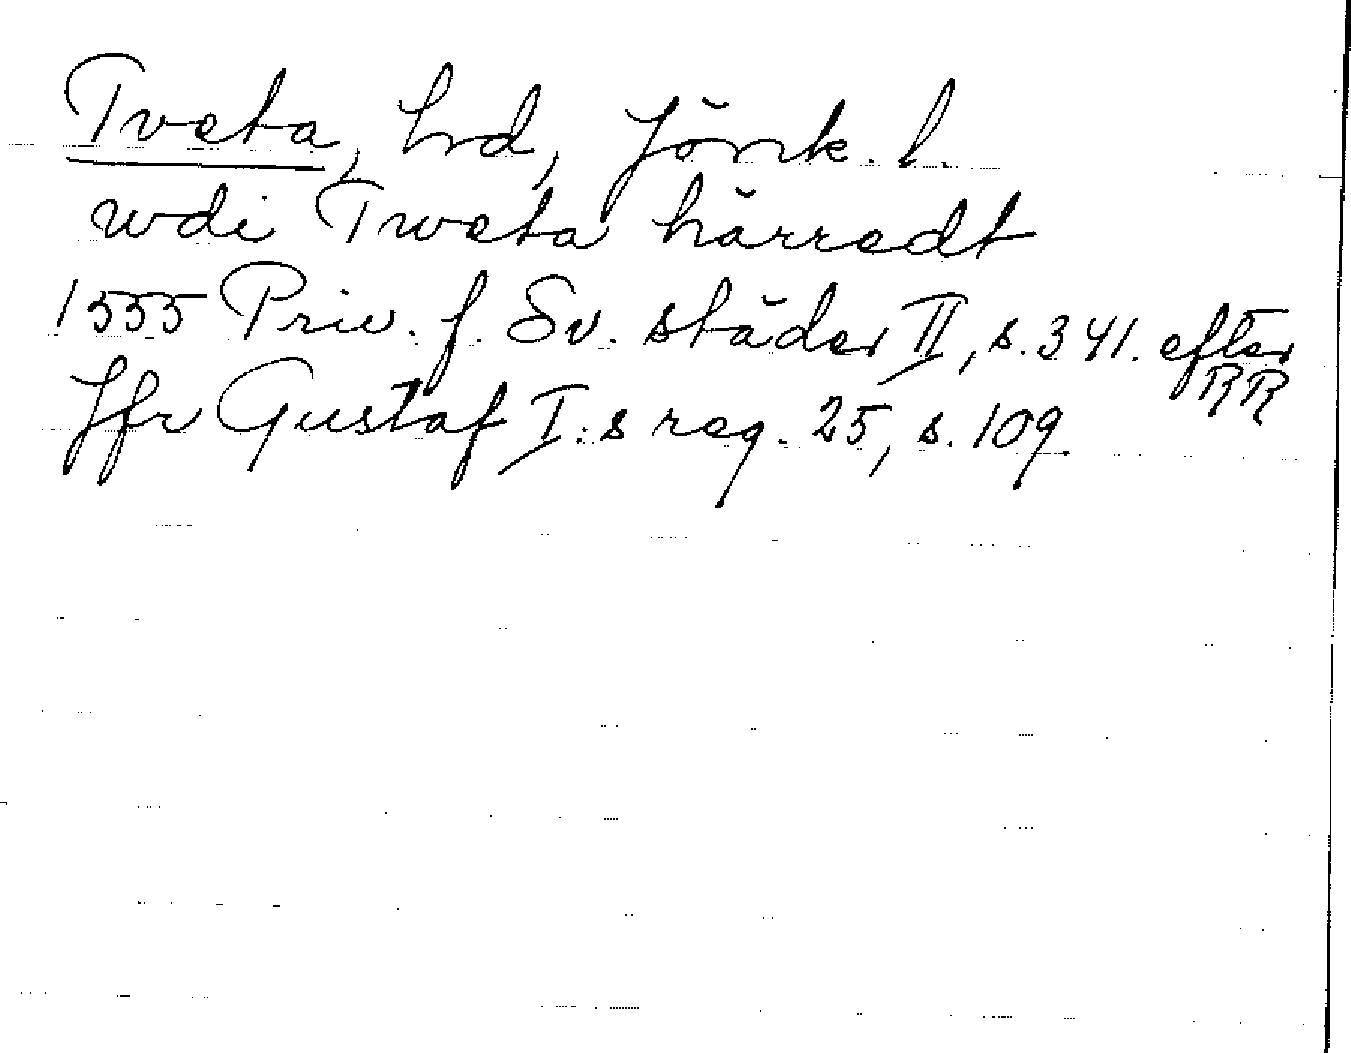 Tveta, hrd, Jönk. l.
wdi Tweta härredt
1555 Priv. f. Sv. städer II, s. 341. efter RR
Jfr Gustaf I:s reg. 25, s. 109.